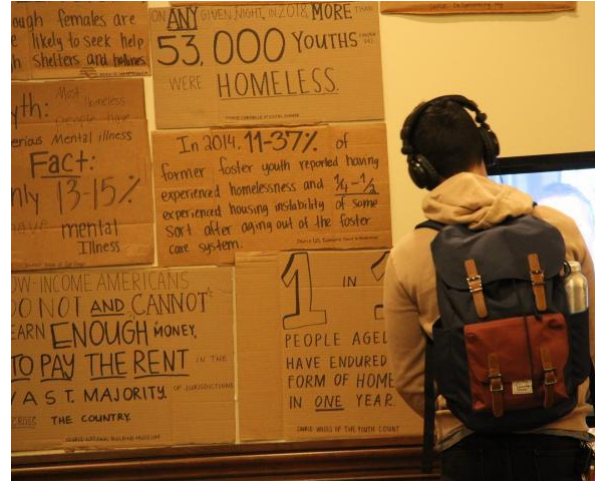 ough females are
likely to seek help
shelters and hotlines
ON ANY GIVEN NIGHT, IN 2018, MORE THAN
53,000 YOUTHS
WERE HOMELESS.
yth: Most homeless
people have
erious Mental illness
Fact:
nly 13-15%
have mental
Illness
In 2014, 11-37% of
former foster youth reported having
experienced homelessness and 1/4-1/2
experienced housing instability of some
sort after aging out of the foster
care system.
OW-INCOME AMERICANS
DO NOT AND CANNOT
EARN ENOUGH MONEY,
TO PAY THE RENT IN THE
VAST MAJORITY OF JURISDICTIONS
CROSS THE COUNTRY.
SOURCE: NATIONAL BUILDING MUSEUM
1 IN 1
PEOPLE AGED
HAVE ENDURED
FORM OF HOME
IN ONE YEAR.